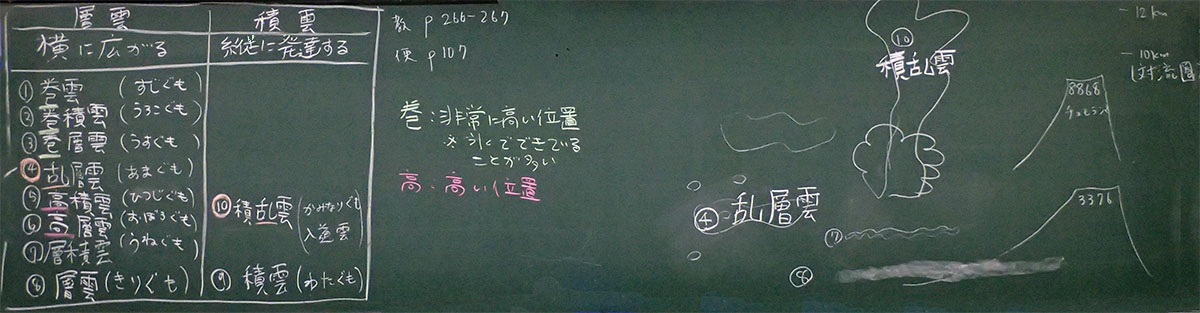 層雲 積雲
横に広がる 縦に発達する
① 巻雲 (すじぐも)
② 巻積雲 (うろこぐも)
③ 巻層雲 (うすぐも)
④ 乱層雲 (あまぐも)
⑤ 高積雲 (ひつじぐも)
⑥ 高層雲 (おぼろぐも)
⑦ 層積雲 (うねぐも)
⑧ 層雲 (きりぐも)
⑩ 積乱雲 (かみなりぐも
入道雲)
⑨ 積雲 (わたぐも)
教 p 266-267
便 p107
巻:非常に高い位置
※氷でできている
ことが多い
高:高い位置
⑩
積乱雲
④ 乱層雲
⑦
⑧
- 12km
- 10km
対流圏
8868
チョモランマ
3376